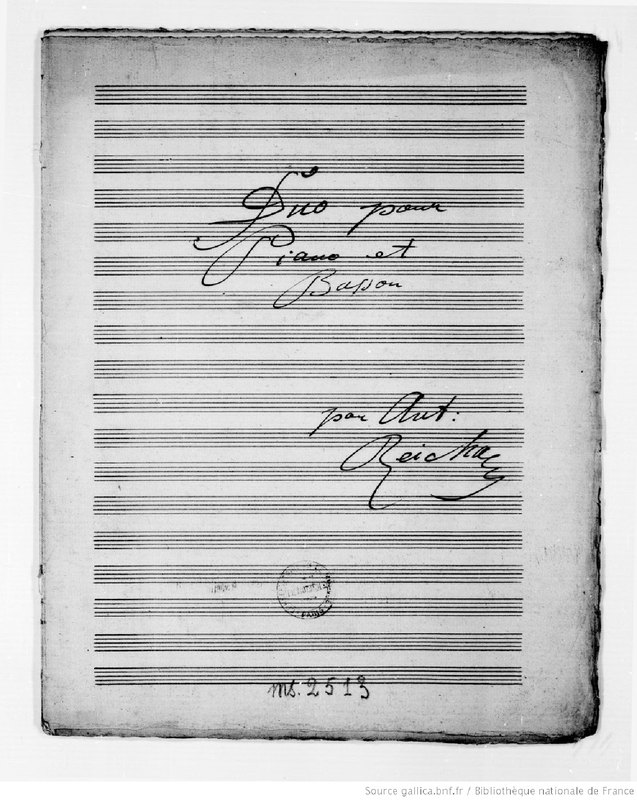 Duo pour
Piano et
Basson
par Ant:
Reicha
PARIS
ms. 2513
Source gallica.bnf.fr / Bibliothèque nationale de France